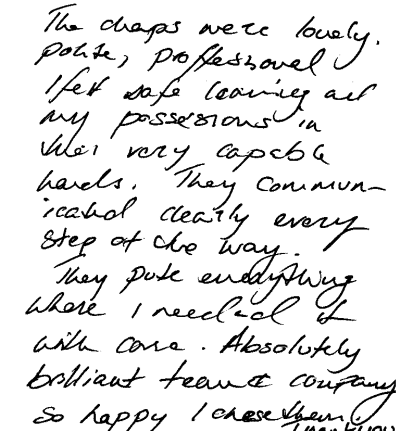 The chaps were lovely.
polite, proffessional
I felt safe leaving all
my possessions in
their very capable
hands. They commun-
icated clearly every
step of the way.
They put everything
where I needed it
with care. Absolutely
brilliant team & company
so happy I chose them.
Thank you